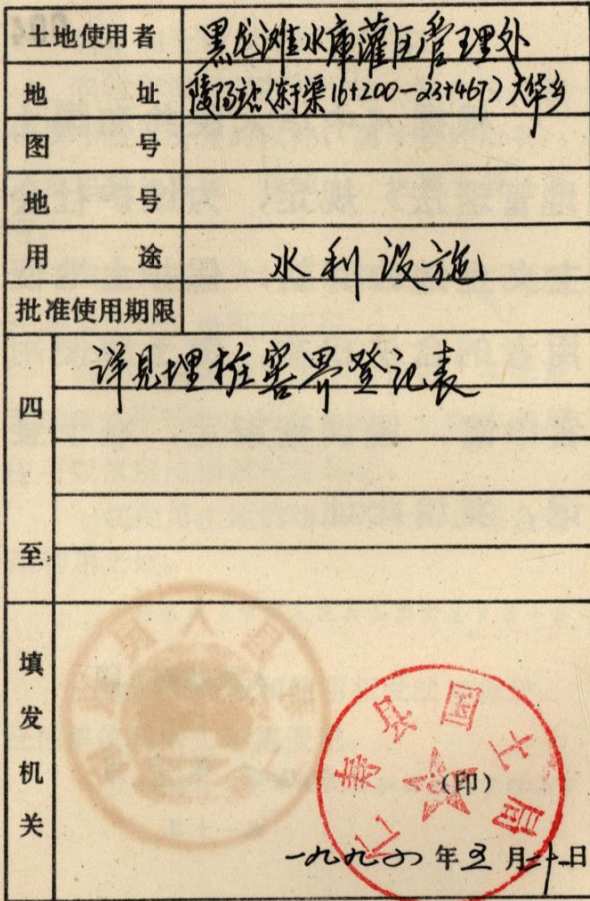 土地使用者 黑龙滩水库灌区管理处
地址 陵阳站(东干渠16+200—23+467)大华乡
图号
地号
用途 水利设施
批准使用期限
四至 详见埋桩窖界登记表
填发机关
仁寿县国土局
(印)
年五月二十日